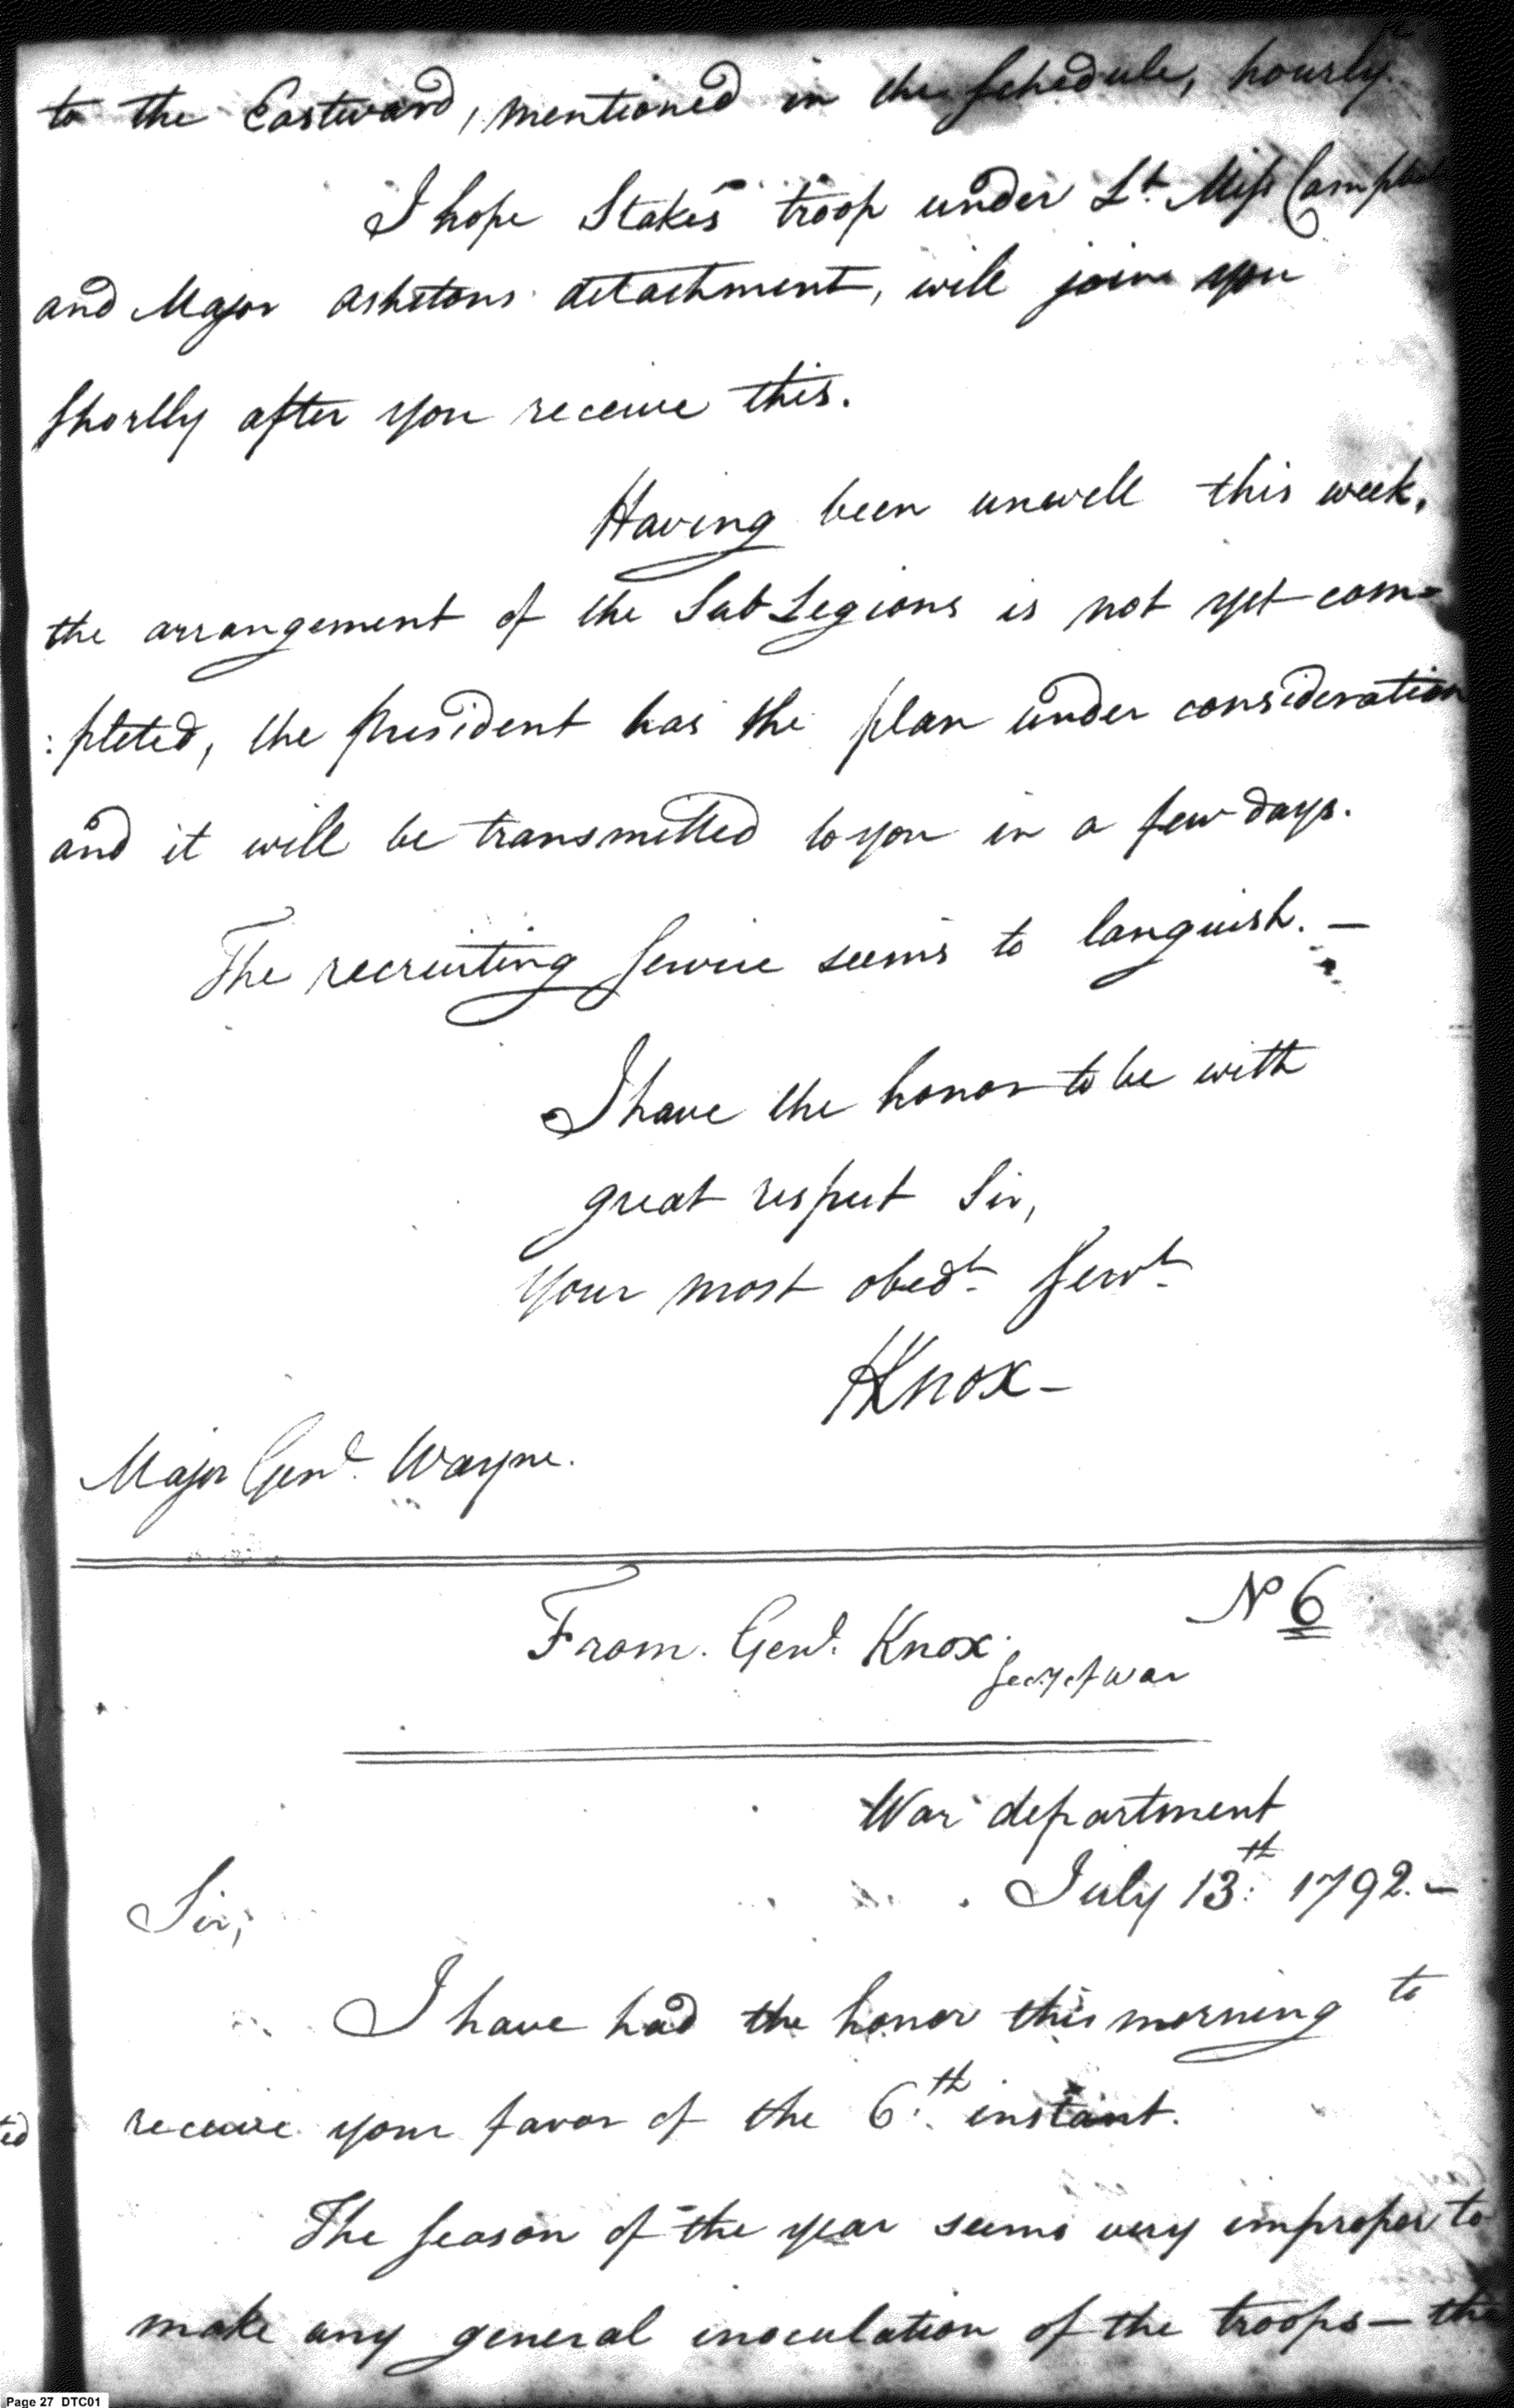 to the Eastward, mentioned in the Schedule, hourly.
I hope Stakes troop under Lt. Miss Campbell
and Major ashetons detachment, will join you
Shortly after you receive this.
Having been unwell this week,
the arrangement of the Sub Legions is not yet com=
:pleted, the president has the plan under consideration
and it will be transmitted to you in a few days.
The recruiting Service seems to languish. —
I have the honor to be with
great respect Sir,
Your most obedt. Servt.
HKnox —
Major Genl. Wayne.
No 6
From. Genl. Knox.
Secy of War
War department
July 13th: 1792. —
Sir,
I have had the honor this morning to
receive your favor of the 6th. instant.
ted
The Season of the year seems very improper to
make any general inoculation of the troops — the
Page 27 DTC01